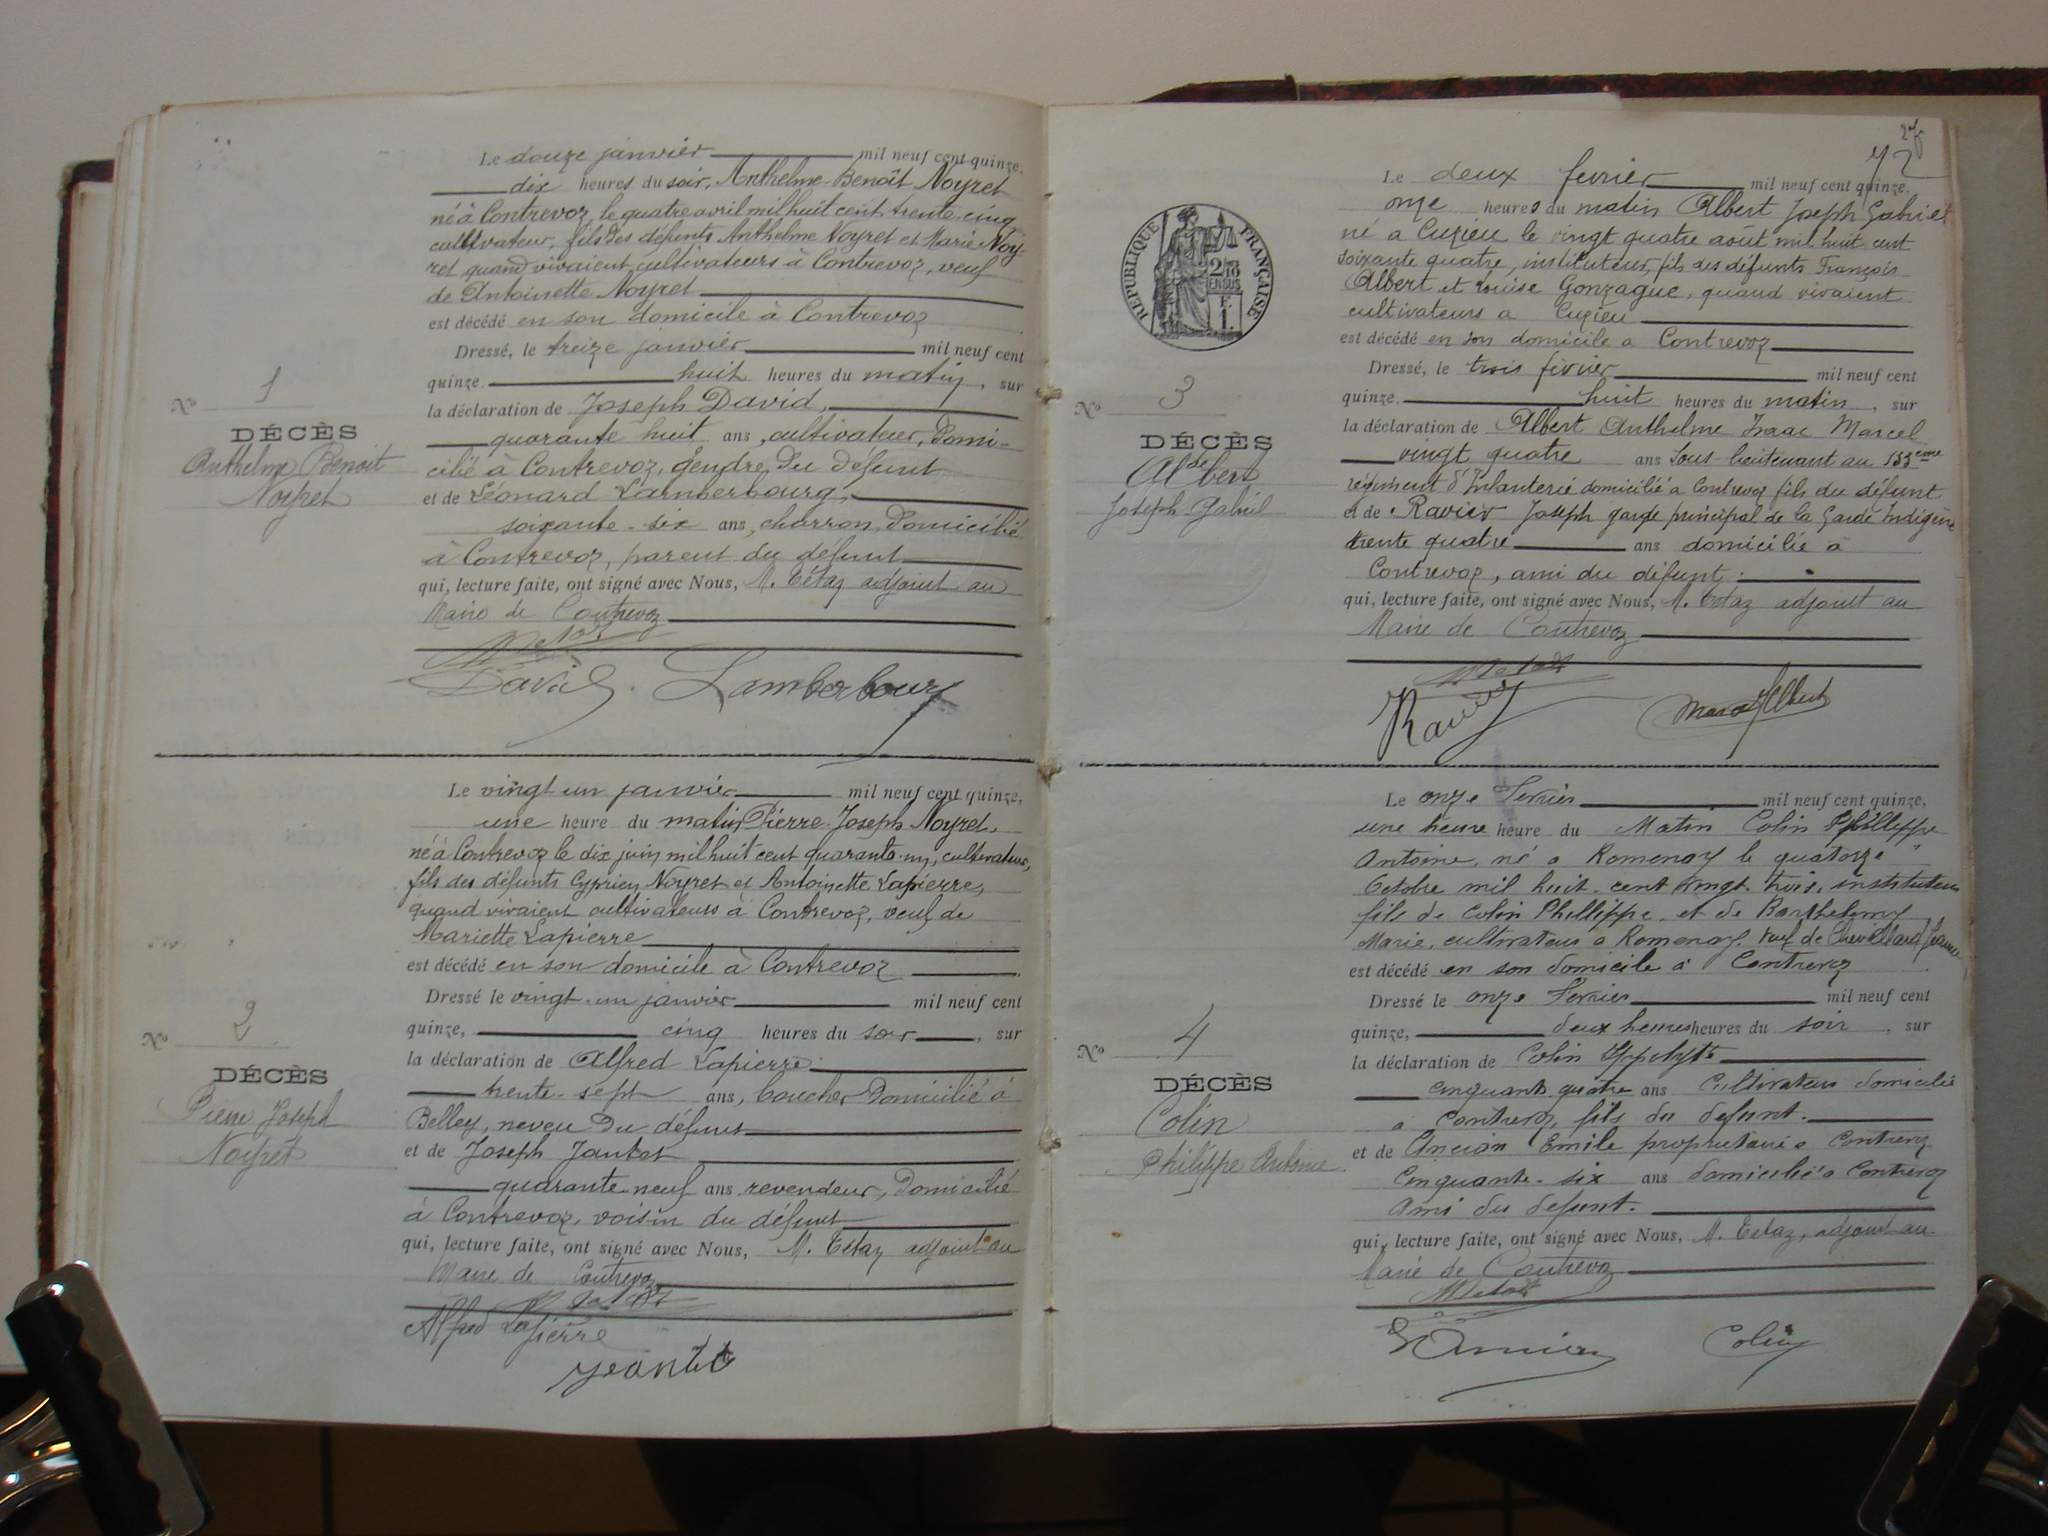 Le douze janvier mil neuf cent quinze,
dix heures du soir, Anthelme Benoît Noyret
né à Contrevoz le quatre avril mil huit cent trente cinq
cultivateur, fils des défunts Anthelme Noyret et Marie Noy-
ret quand vivaient cultivateurs à Contrevoz, veuf
de Antoinette Noyret
est décédé en son domicile à Contrevoz
Dressé, le treize janvier mil neuf cent
quinze. huit heures du matin, sur
la déclaration de Joseph David,
quarante huit ans, cultivateur, domi-
cilié à Contrevoz, gendre du défunt
et de Léonard Lamberbourg,
soixante-six ans, charron, domicilié
à Contrevoz, parent du défunt
qui, lecture faite, ont signé avec Nous, M. Tétaz adjoint au
Maire de Contrevoz
David Lamberbourg
No 1
DÉCÈS
Anthelme Benoit
Noyret
Le vingt un janvier mil neuf cent quinze,
une heure du matin Pierre-Joseph Noyret,
né à Contrevoz le dix juin mil huit cent quarante-un, cultivateur,
fils des défunts Cyprien Noyret et Antoinette Lapierre,
quand vivaient cultivateurs à Contrevoz, veuf de
Mariette Lapierre
est décédé en son domicile à Contrevoz
Dressé le vingt-un janvier mil neuf cent
quinze, cinq heures du soir, sur
la déclaration de Alfred Lapierre
trente-sept ans, boucher domicilié à
Belley, neveu du défunt
et de Joseph Jantet
quarante-neuf ans revendeur, domicilié
à Contrevoz, voisin du défunt
qui, lecture faite, ont signé avec Nous, M. Tétaz adjoint au
Maire de Contrevoz
Alfred Lapierre
Jeantet
No 2
DÉCÈS
Pierre Joseph
Noyret
72
RÉPUBLIQUE FRANÇAISE
2/10
EN SUS
F.
1.
Le deux fevrier mil neuf cent quinze,
onze heures du matin Albert Joseph Gabriel
né a Cuzieu le vingt quatre août mil huit cent
soixante quatre, instituteur, fils des défunts François
Albert et Louise Gonzague, quand vivaient
cultivateurs a Cuzieu
est décédé en son domicile a Contrevoz
Dressé, le trois février mil neuf cent
quinze. huit heures du matin, sur
la déclaration de Albert Anthelme Isaac Marcel
vingt quatre ans Sous-lieutenant au 133eme
régiment d'Infanterie domicilié a Contrevoz fils du défunt
et de Ravier Joseph garde principal de la Garde Indigène
trente quatre ans domicilié à
Contrevoz, ami du défunt.
qui, lecture faite, ont signé avec Nous, M. Tétaz adjoint au
Maire de Contrevoz
Ravier Marcel Albert
No 3
DÉCÈS
Albert
Joseph Gabriel
Le onze Fevrier mil neuf cent quinze,
une heure heure du Matin Colin Phillippe
Antoine, né a Romenay le quatorze
Octobre mil huit-cent vingt-trois, instituteur
fils de Colin Phillippe et de Barthelemy
Marie, cultivateurs a Romenay, Veuf de Chevillard Jeanne
est décédé en son domicile à Contrevoz
Dressé le onze Fevrier mil neuf cent
quinze, deux heures heures du soir, sur
la déclaration de Colin Hyppolyte
cinquante quatre ans Cultivateur domicilié
a Contrevoz, fils du defunt.
et de Ancian Emile proprietaire a Contrevoz
Cinquante-six ans domicilié a Contrevoz
ami du defunt.
qui, lecture faite, ont signé avec Nous, M. Tétaz, adjoint au
Maire de Contrevoz
Colin
No 4
DÉCÈS
Colin
Philippe Antoine